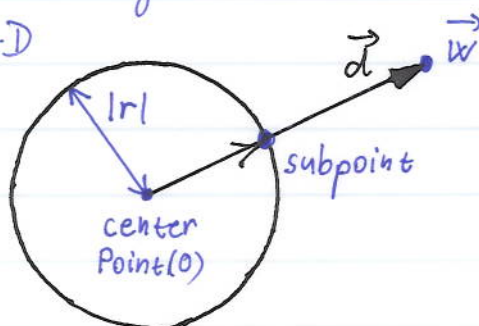 -D
d
w
|r|
subpoint
center
Point(0)